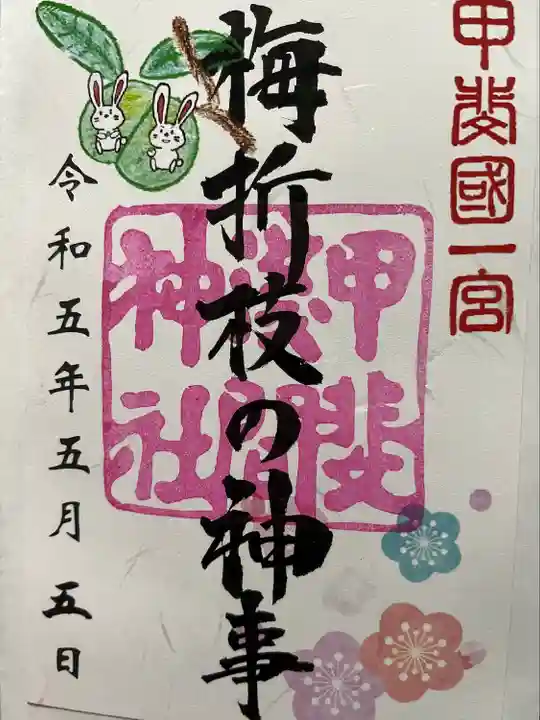 甲斐國一宮
梅折枝の神事
甲斐
浅間
神社
令和五年五月五日